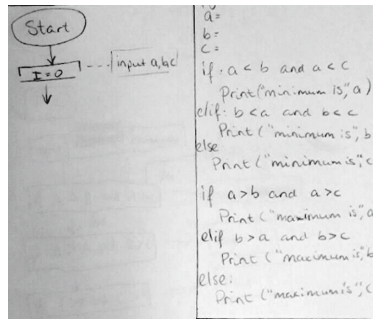 Start
I = 0
input a,b,c
a=
b=
c=
if: a < b and a < c
Print("minimum is", a)
elif: b < a and b < c
Print ("minimum is", b
else
Print ("minimum is", c
if a > b and a > c
Print ("maximum is", a
elif b > a and b > c
Print ("maximum is", b
else:
Print ("maximum is", c